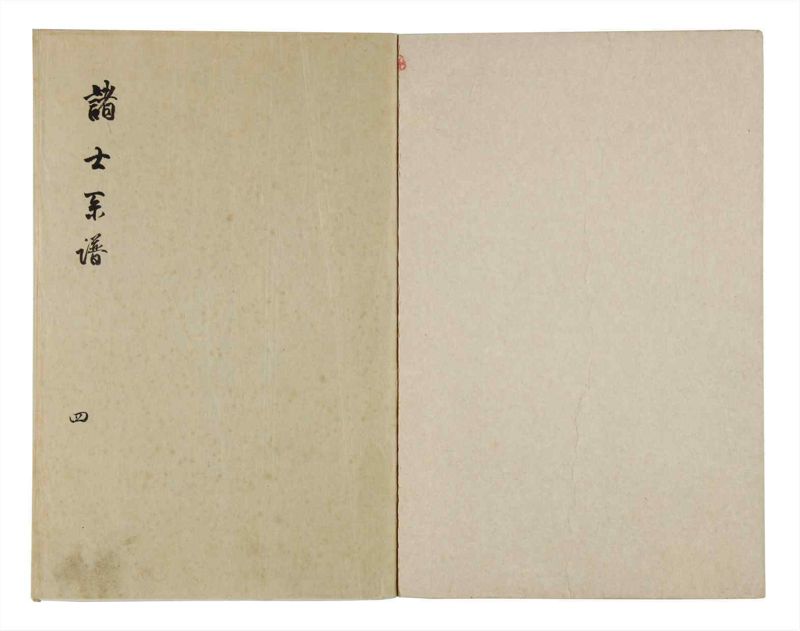 諸士系譜
四